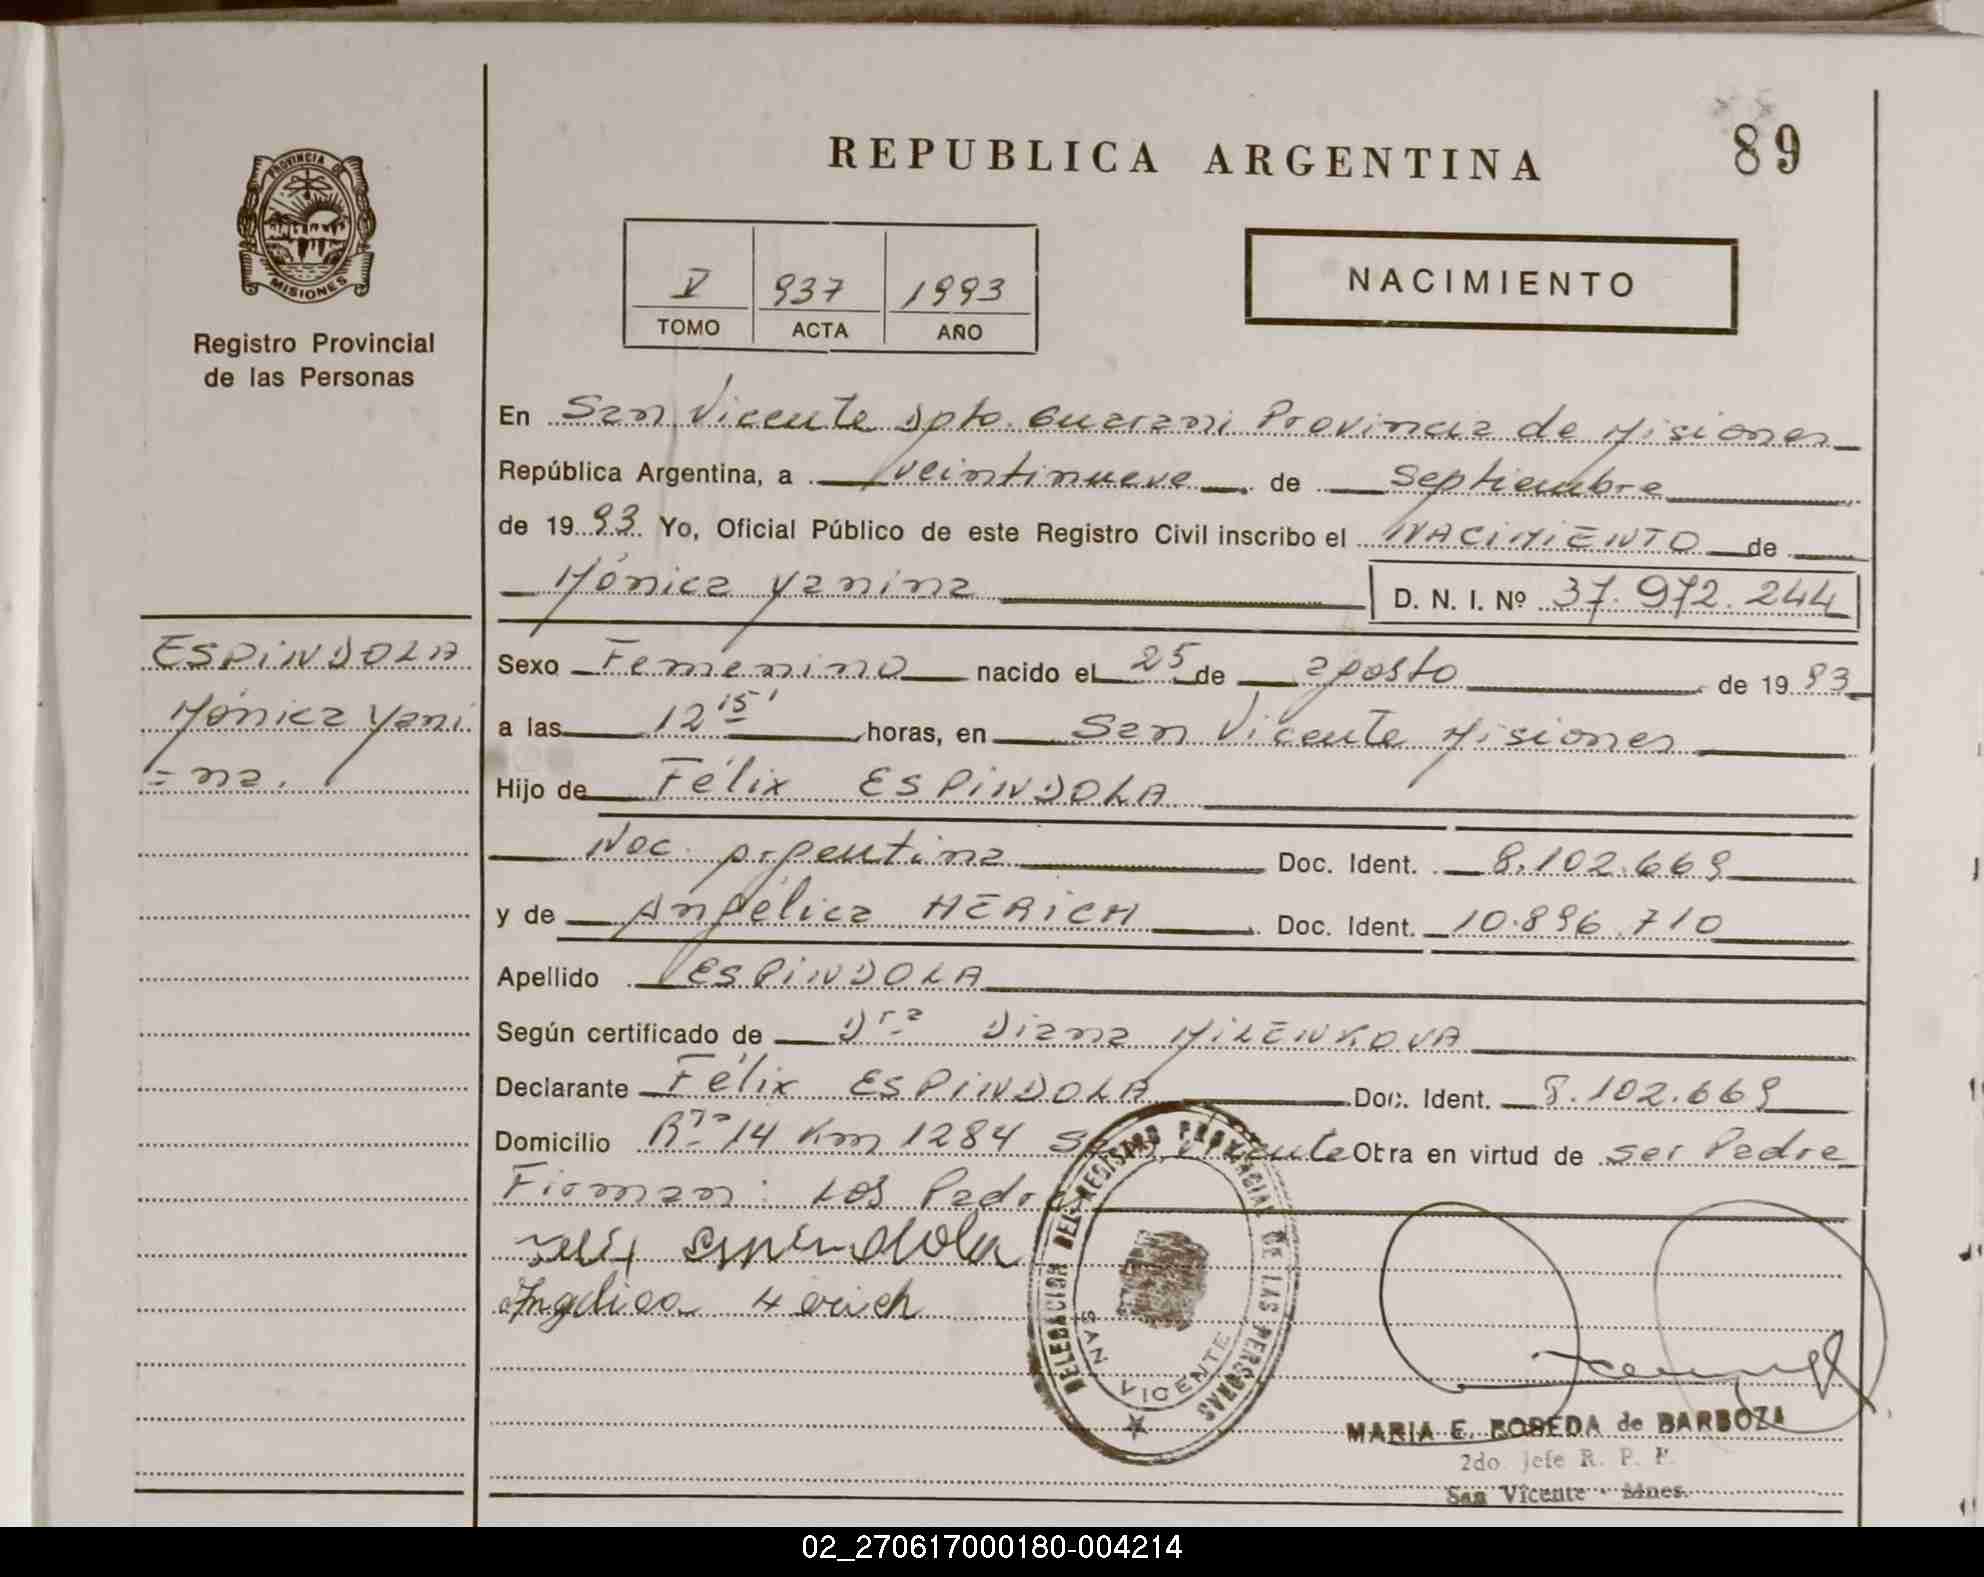 REPUBLICA ARGENTINA
89
PROVINCIA DE
MISIONES
Registro Provincial
de las Personas
V 937 1993
TOMO ACTA AÑO
NACIMIENTO
En San Vicente Dpto. Guarani Provincia de Misiones
República Argentina, a veintinueve de Septiembre
de 1993 Yo, Oficial Público de este Registro Civil inscribo el NACIMIENTO de
Mónica Yanina D. N. I. Nº 37.972.244
ESPINDOLA
Mónica Yani
=na.
Sexo Femenino nacido el 25 de agosto de 1993
a las 12 15' horas, en San Vicente Misiones
Hijo de Félix ESPINDOLA
Nac. Argentina Doc. Ident. 8.102.669
y de Angélica HERICH Doc. Ident. 10.896.710
Apellido ESPINDOLA
Según certificado de Dra Diana MILENKOVA
Declarante Félix ESPINDOLA Doc. Ident. 8.102.669
Domicilio Rta 14 Km 1284 San Vicente Obra en virtud de ser Padre
Firman: Los Padr
Felix Espindola
Angelica Herich
DELEGACION DEL REGISTRO PROVINCIAL DE LAS PERSONAS
SAN VICENTE
MARIA E. POREDA de BARBOZA
2do. Jefe R. P. P.
San Vicente - Mnes.
02_270617000180-004214